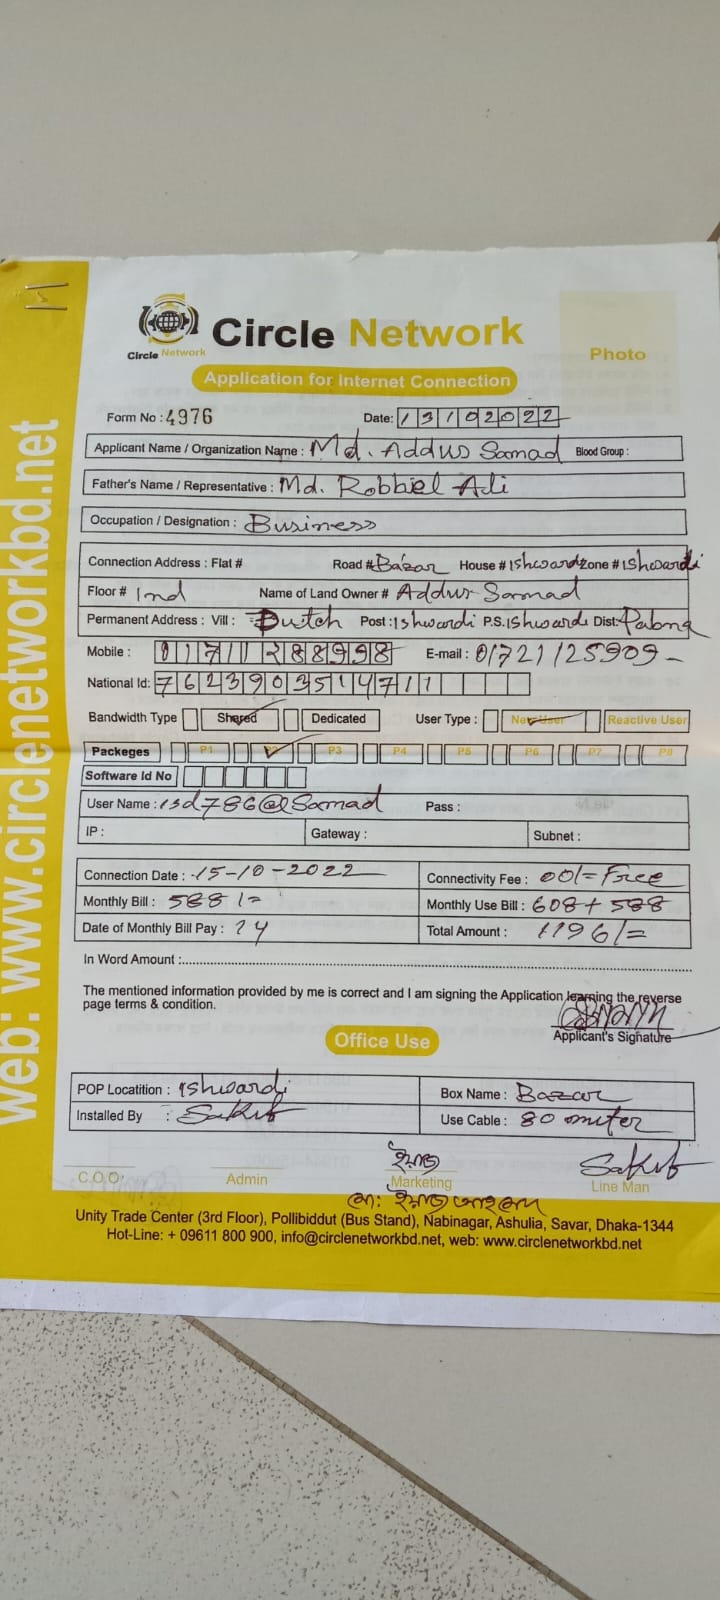 web: www.circlenetworkbd.net
Circle Network
Circle Network
Photo
Application for Internet Connection
Form No : 4976 Date: 13102022
Applicant Name / Organization Name : Md. Addus Samad Blood Group :
Father's Name / Representative : Md. Robbiel Adi
Occupation / Designation : Business
Connection Address : Flat # Road # Bazar House # Ishwardi Zone # Ishwardi
Floor # Ind Name of Land Owner # Addus Samad
Permanent Address : Vill : Post : Ishwardi P.S. Ishwardi Dist: Pabna
Mobile : 01711288998 E-mail : 01721125909
National Id: 7623903514711
Bandwidth Type Shared Dedicated User Type : New User Reactive User
Packeges P1 P2 P3 P4 P5 P6 P7 P8
Software Id No
User Name : isd786@Samad Pass :
IP : Gateway : Subnet :
Connection Date : 15-10-2022 Connectivity Fee : 00/= Free
Monthly Bill : 588/= Monthly Use Bill : 608 + 588
Date of Monthly Bill Pay : 14 Total Amount : 1196/=
In Word Amount :
The mentioned information provided by me is correct and I am signing the Application learning the reverse
page terms & condition.
Applicant's Signature
Office Use
POP Locatition : Ishwardi Box Name : Bazar
Installed By : Sakib Use Cable : 80 miter
Sakib
C.O.O. Admin Marketing Line Man
Unity Trade Center (3rd Floor), Pollibiddut (Bus Stand), Nabinagar, Ashulia, Savar, Dhaka-1344
Hot-Line: + 09611 800 900, info@circlenetworkbd.net, web: www.circlenetworkbd.net